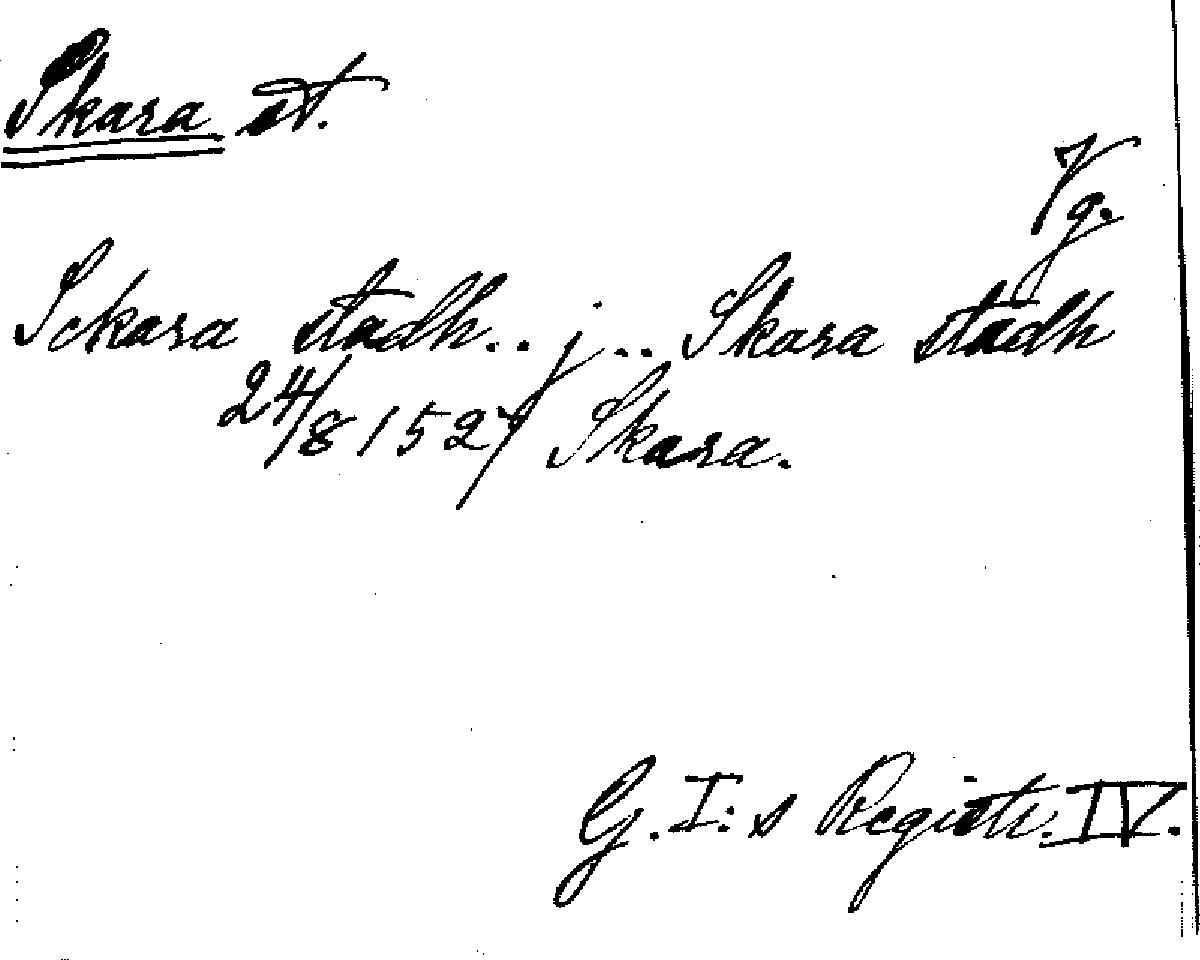 Skara st.
Vg.
Sckara stadh.. j.. Skara stadh
24/8 1527 Skara.
G. I:s Registr. IV.